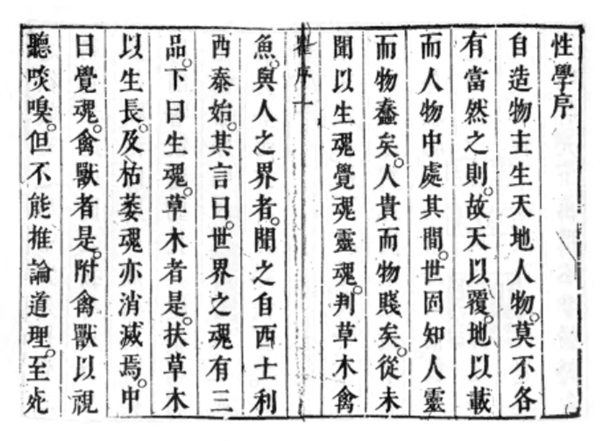 性學序
自造物主生天地人物。莫不各
有當然之則。故天以覆。地以載
而人物中處其間。世固知人靈
而物蠢矣。人貴而物賤矣。從未
聞以生魂覺魂靈魂。判草木禽
序一
魚。與人之界者。聞之自西士利
西泰始。其言曰。世界之魂有三
品。下曰生魂。草木者是。扶草木
以生長。及枯萎魂亦消滅焉。中
曰覺魂。禽獸者是。附禽獸以視
聽啖嗅。但不能推論道理。至死